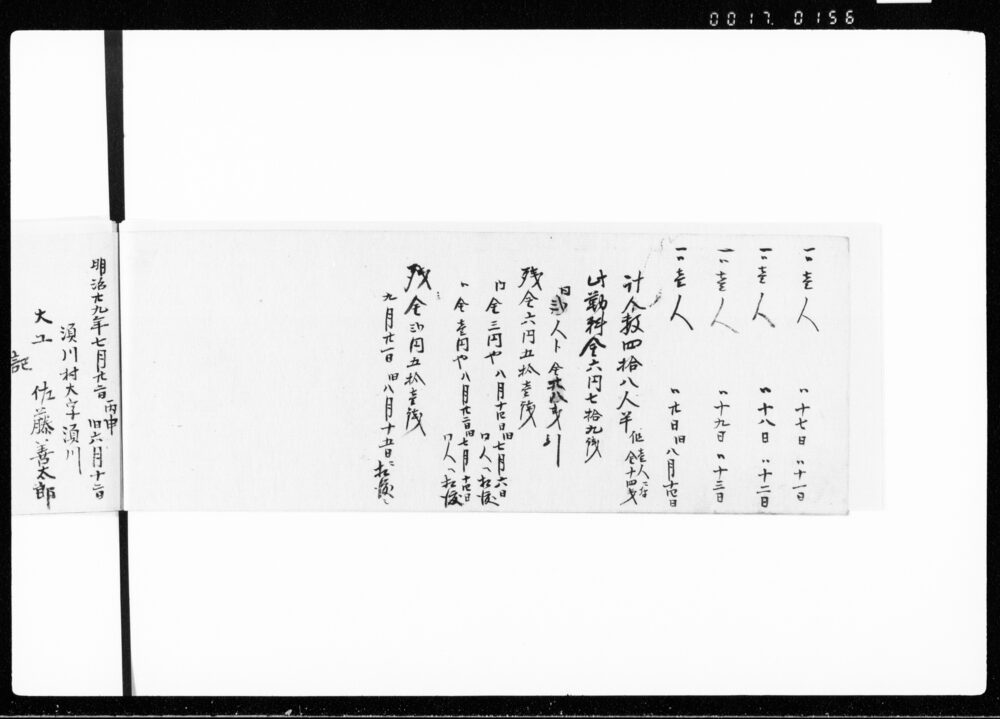 0017 0156
一〃壱人 〃十七日〃十一日
一〃壱人 〃十八日〃十二日
一〃壱人 〃十九日〃十三日
一〃壱人 〃廿日旧八月十四日
計人数四拾八人半
此勤料金六円七拾九銭
残金六円五拾壱銭
内金三円や八月十四日旧七月六日
〃金壱円や八月廿二日旧七月十四日
残金弐円五拾壱銭
九月廿一日旧八月十五日
明治廿九年七月廿二日 丙申旧六月十二日
須川村大字須川
大工 佐藤善太郎
記